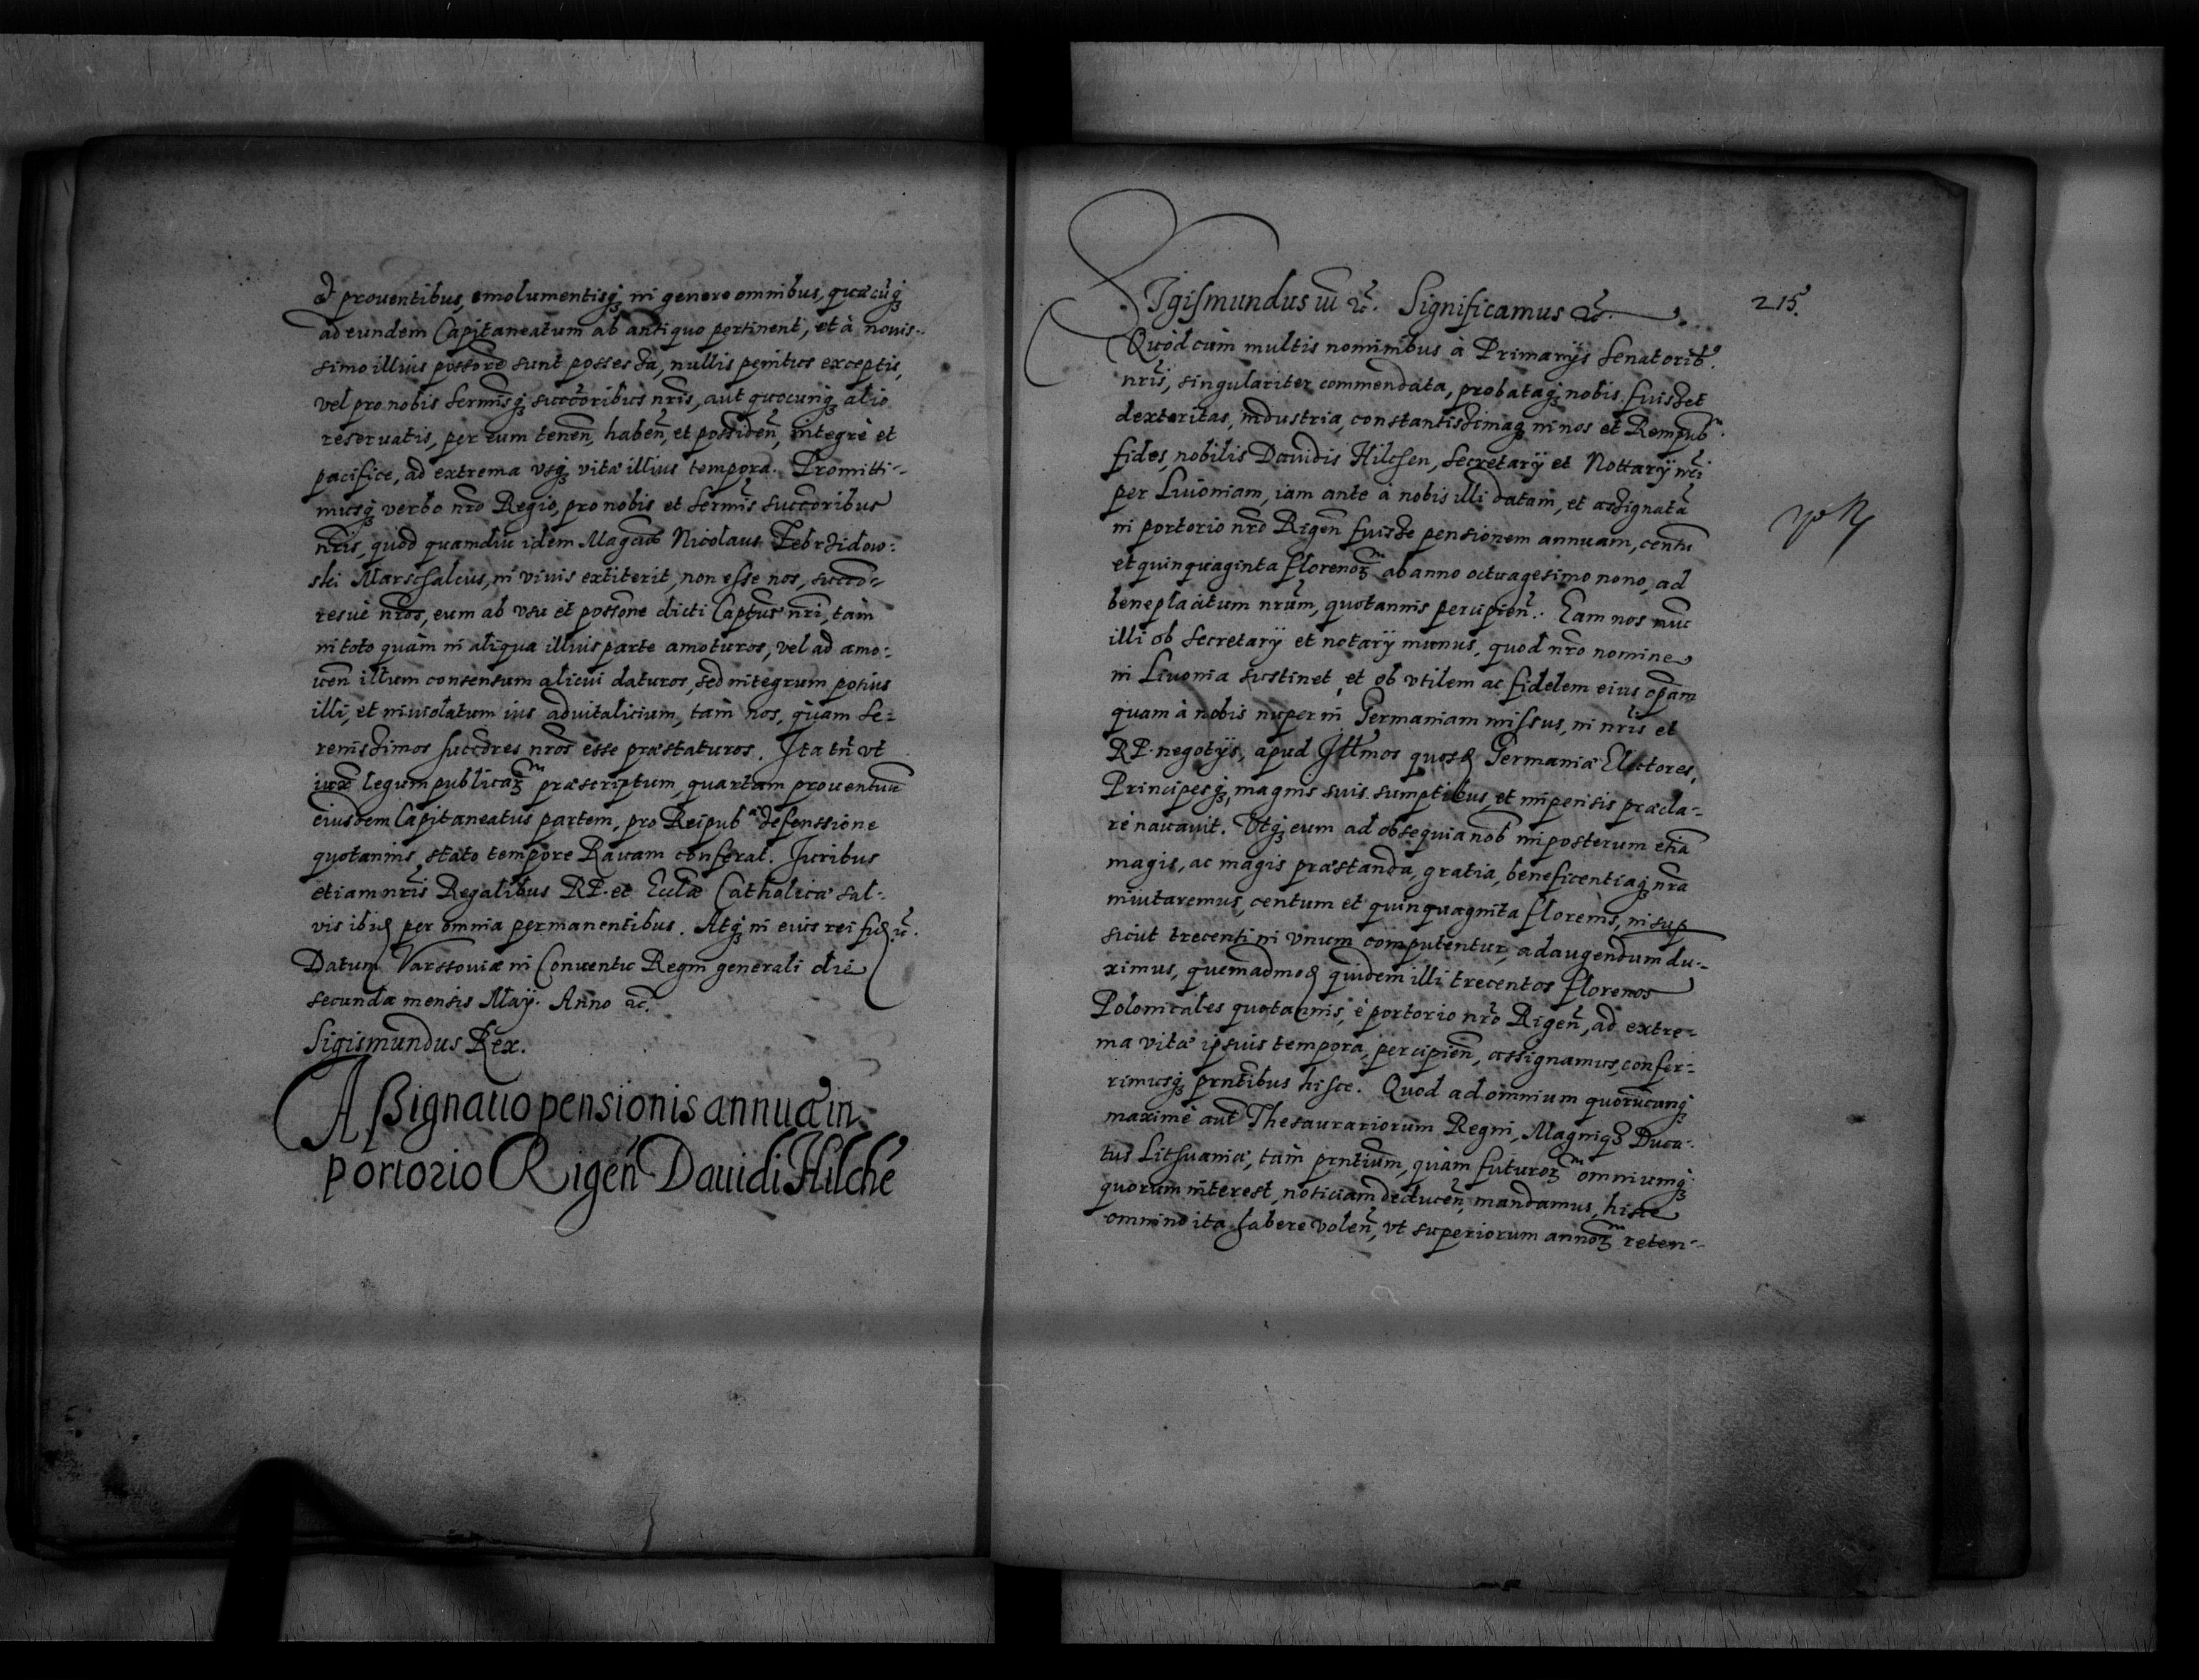 et prouentibus, emolumentisq́ꝫ in genere omnibus, quæcūq́ꝫ
ad eundem Capitaneatum ab antiquo pertinent, et à nouis-
simo illius possore sunt possessa, nullis penitus exceptis,
vel pro nobis Sermisq́ꝫ succoribus nris, aut quocunq́ꝫ alio
reseruatis, per eum tenen̄, haben̄, et possiden̄, integrè et
pacifice, ad extrema vsq́ꝫ vitæ illius tempora. Promitti-
musq́ꝫ verbo nro Regio, pro nobis et Sermis succoribus
nris, quod quamdiu idem Magcus Nicolaus Zebrzidow:
ski Marschalcus, in viuis extiterit, non esse nos, succo-
resue nros, eum ab vsu et possone dicti Captus nri, tàm
in toto quàm in aliqua illius parte amoturos, vel ad amo:
uen̄ illum consensum alicui daturos, sed integrum potius
illi, et inuiolatum ius aduitalicium, tàm nos, quàm Se-
renissimos succores nros esse præstaturos. Ita tn̄ vt
iuxa legum publicaꝝ præscriptum, quartam prouentuū
eiusdem Capitaneatus partem, pro Reipub defenssione
quotannis, stato tempore Rauam conferat. Iuribus
etiam nris Regalibus RP. et Ecclæ Catholicæ sal-
vis ibid per omnia permanentibus. Atq́ꝫ in eius rei fid ꝛc̄.
Datum Varssouiæ in Conuentu Regni generali die
secunda mensis Maÿ. Anno ꝛc̄.
Sigismundus Rex.
Assignatio pensionis annuæ in
portorio Rigen̄ Dauidi Hilche
Sigismundus iii ꝛc̄. Significamus ꝛc̄.
215.
Quòd cùm multis nominibus à Primarijs Senatorib9
nris, singulariter commendata, probataq́ꝫ nobis fuisset
dexteritas, industria, constantissimaq́ꝫ in nos et Rempub
fides, nobilis Dauidis Hilchen, Secretarÿ et Nottarÿ nri
per Liuoniam, iam ante à nobis illi datam, et assignatā
in portorio nro Rigen̄ fuisse pensionem annuam, centū
et quinquaginta florenoꝝ ab anno octuagesimo nono, ad
beneplacitum nrum, quotannis percipien̄. Eam nos nuc
illi ob Secretarÿ et notarÿ munus, quod nro nomine
in Liuonia sustinet, et ob vtilem ac fidelem eius opam
quam à nobis nuper in Germaniam missus, in nris et
RP. negotijs, apud Illmos quosd Germaniæ Electores,
Principesq́ꝫ, magnis suis sumptibus, et impensis præcla-
rè nauauit. Vtq́ꝫ eum ad obsequia nob imposterum etiā
magis, ac magis præstanda, gratia, beneficentiaq́ꝫ nra
inuitaremus, centum et quinquaginta florenis, in sup
sicut trecenti in vnum computentur, adaugendum du-
ximus, quemadmod quidem illi trecentos florenos
Polonicales quotannis, è portorio nro Rigen̄, ad extre-
ma vitæ ipsius tempora, percipien̄, assignamus, confer-
rimusq́ꝫ prntibus hisce. Quod ad omnium quorūcunq́ꝫ
maximè aut Thesaurariorum Regni, Magniqꝫ Duca-
tus Lithuaniæ, tàm prntium, quàm futuroꝝ omniumq́ꝫ
quorum interest, noticiam deducen̄, mandamus, hisce
omnino ita habere volen̄, vt superiorum annoꝝ reten-